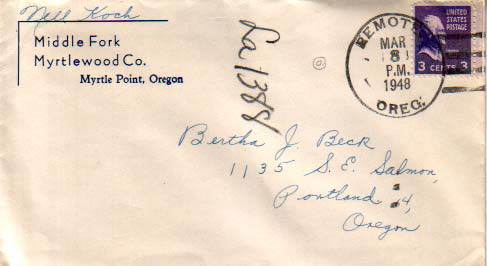 Nell Koch
Middle Fork
Myrtlewood Co.
Myrtle Point, Oregon
La 1388
REMOTE
MAR
8
P.M.
1948
OREG.
UNITED
STATES
POSTAGE
3 CENTS 3
Bertha J. Beck
1135 S.E. Salmon,
Portland 4,
Oregon